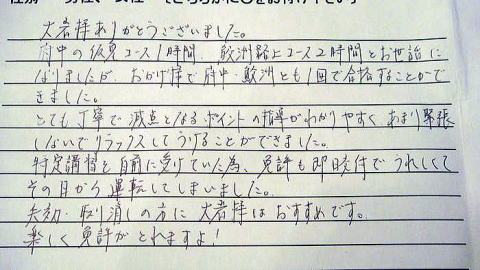 大変ありがとうございました。
府中の仮免コース1時間、鮫洲路上コース2時間とお世話に
なりましたが、おかげ様で府中・鮫洲とも1回で合格することがで
きました。
とても丁寧で減点となるポイントの指導がわかりやすく、あまり緊張
しないでリラックスしてうけることができました。
特定講習を自前に受けていた為、免許も即日交付でうれしくて
その日から運転してしまいました。
失効・取り消しの方に はおすすめです。
楽しく免許がとれますよ!